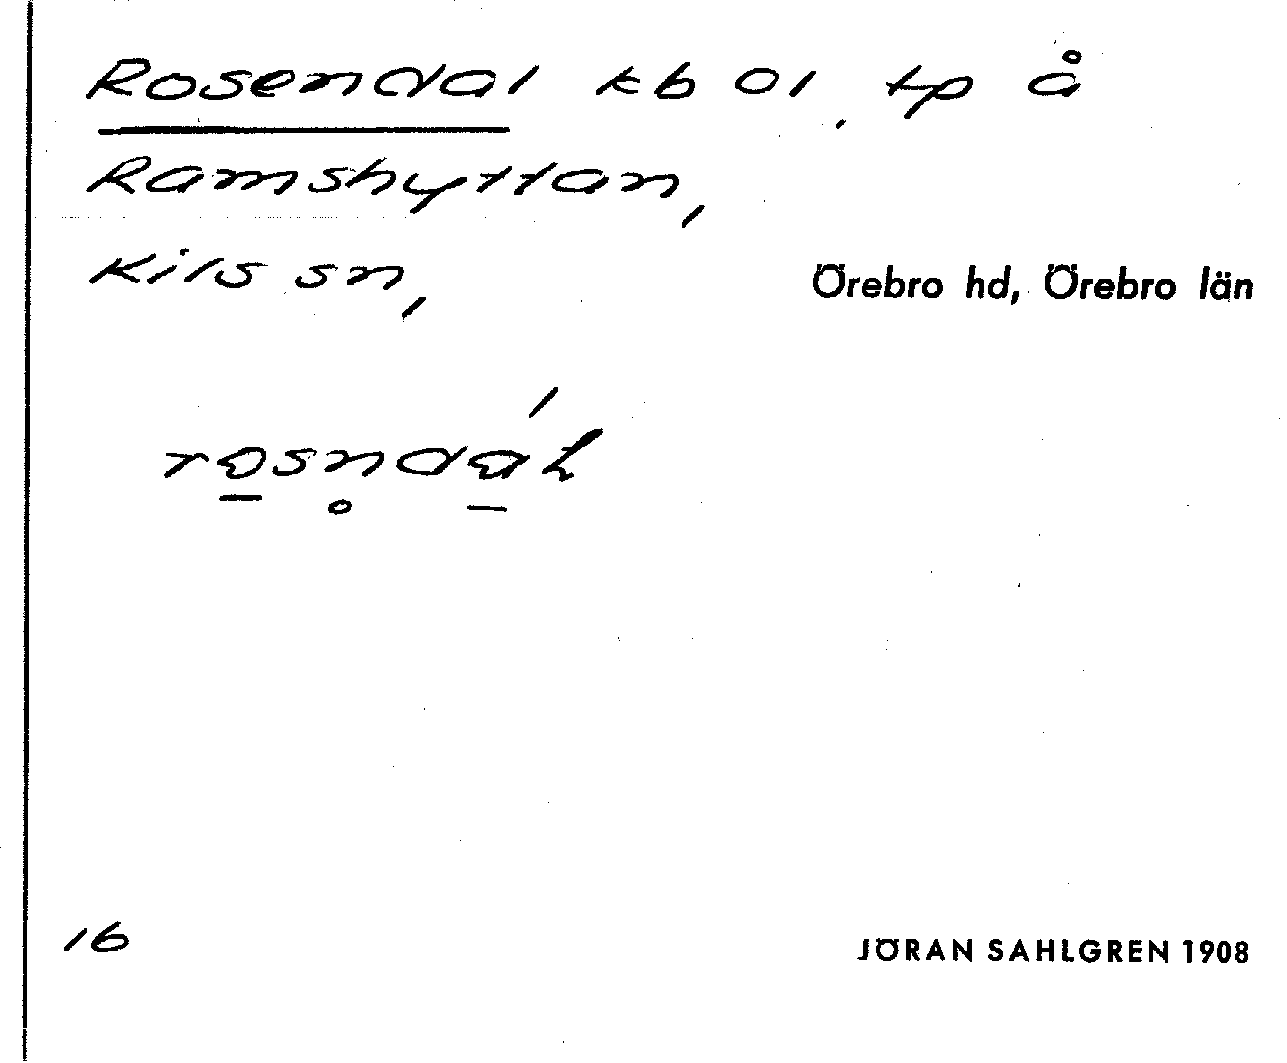 Rosendal kb 01, tp å
Ramshyttan,
Kils sn,
Örebro hd, Örebro län
ro̲sn̥dá̲ł
16
JÖRAN SAHLGREN 1908